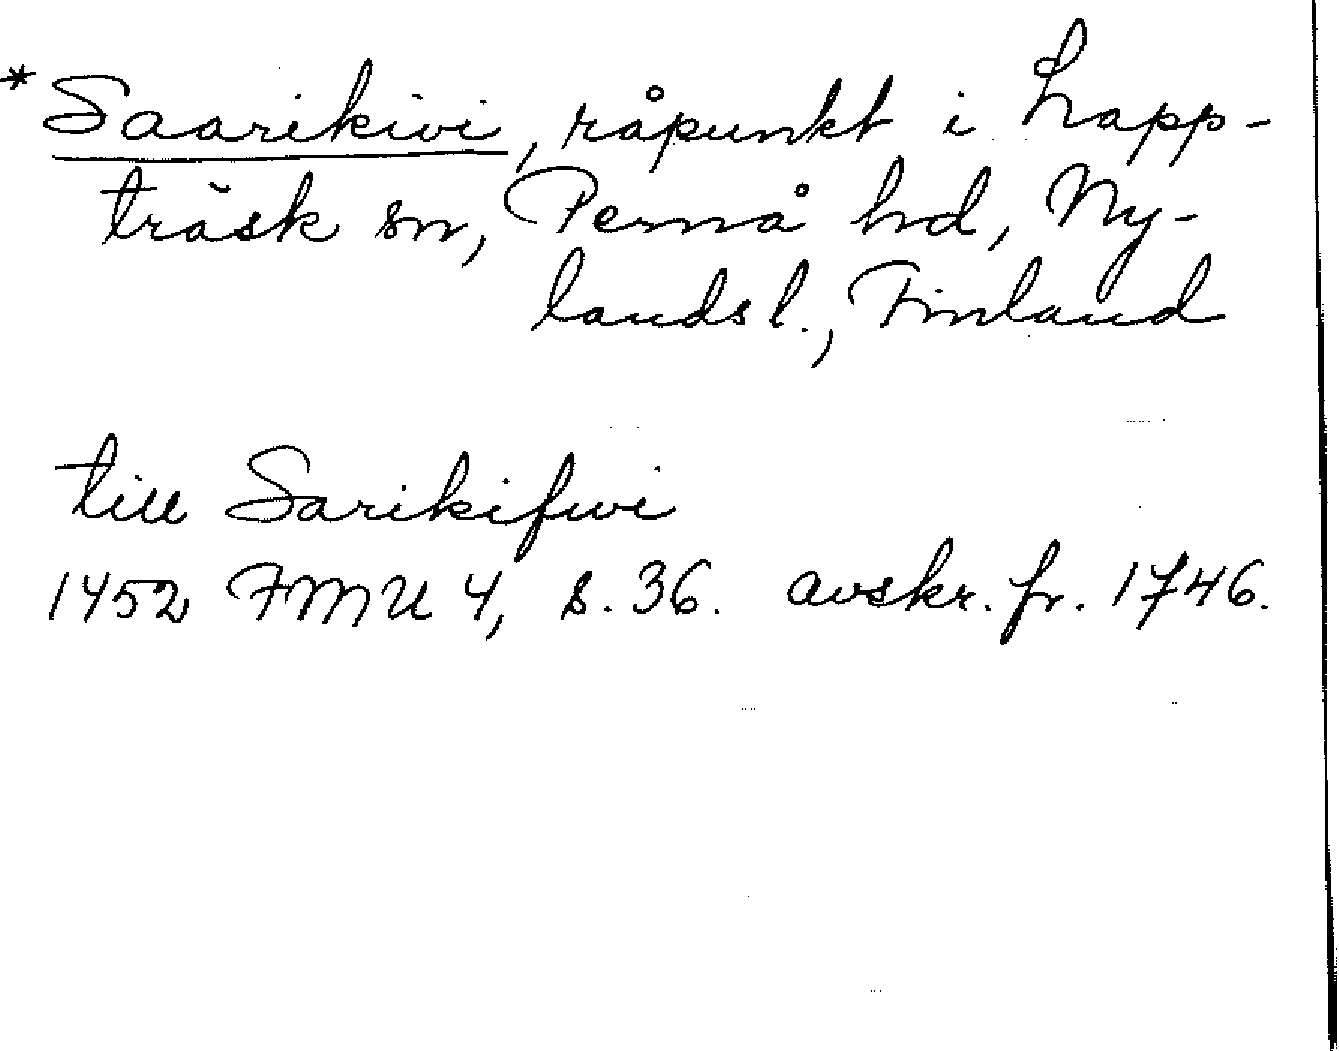 *Saarikivi, råpunkt i Lapp-
träsk sn, Pernå hd, Ny-
lands l., Finland
till Sarikifwi
1452 FMU 4, s. 36. avskr. fr. 1746.